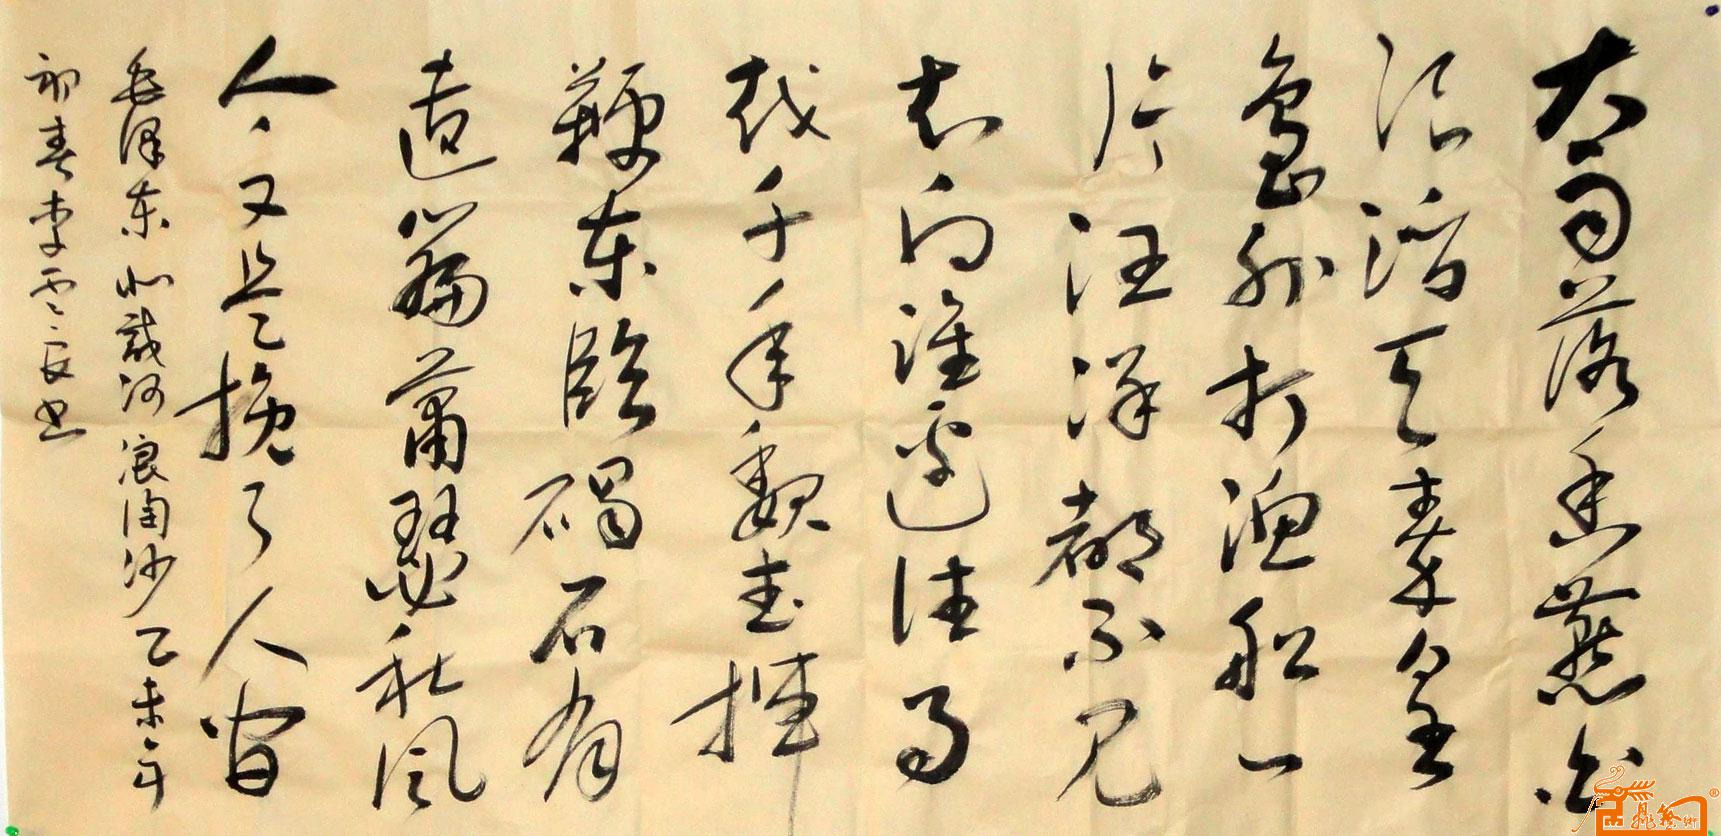 大雨落幽燕白
浪滔天秦皇
岛外打渔船一
片汪洋都不见
知向谁边往事
越千年魏武挥
鞭东临碣石有
遗篇萧瑟秋风
今又是换了人间
毛泽东北戴河浪淘沙乙未年
初春李云良书